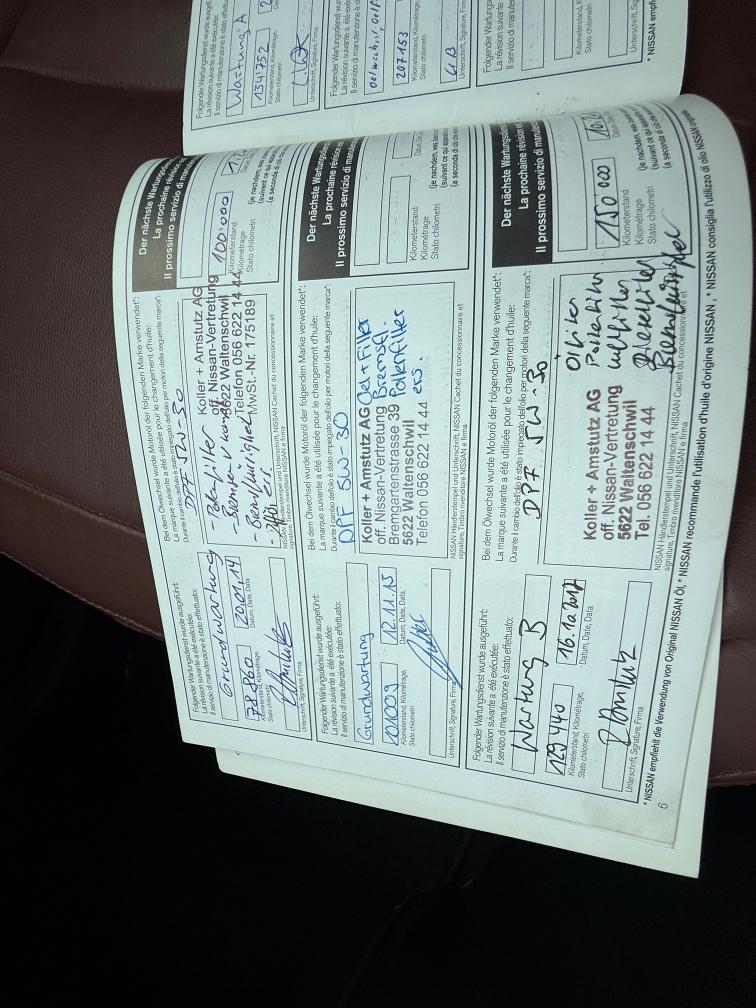 Folgender Wartungsdienst wurde ausgeführt:
La révision suivante a été exécutée:
Il servizio di manutenzione è stato effettuato:
Grundwartung
20.01.14
Kilometerstand, Kilométrage,
Stato chilometri
Datum, Date, Data
Unterschrift, Signature, Firma
Bei dem Ölwechsel wurde Motoröl der folgenden Marke verwendet*:
La marque suivante a été utilisée pour le changement d'huile:
Durante il cambio dell'olio è stato impiegato dell'olio per motori della seguente marca*:
DPF 5W-30
Polenfilter
Koller + Amstutz AG
off. Nissan-Vertretung
5622 Waltenschwil
Telefon 056 622 14 44
MwSt.-Nr. 175189
NISSAN Händlerstempel und Unterschrift, NISSAN Cachet du concessionnaire et
signature, Timbro rivenditore NISSAN e firma
Der nächste Wartungsd
La prochaine révis
Il prossimo servizio di ma
100'000
Kilometerstand
Kilométrage
Stato chilometri
(je nachdem, was
(suivant ce qui
(a seconda di
Folgender Wartungsdienst wurde ausgeführt:
La révision suivante a été exécutée:
Il servizio di manutenzione è stato effettuato:
Grundwartung
101009
12.11.15
Kilometerstand, Kilométrage,
Stato chilometri
Datum, Date, Data
Unterschrift, Signature, Firma
Bei dem Ölwechsel wurde Motoröl der folgenden Marke verwendet*:
La marque suivante a été utilisée pour le changement d'huile:
Durante il cambio dell'olio è stato impiegato dell'olio per motori della seguente marca*:
DPF 5W-30
Koller + Amstutz AG Oel+Filter
off. Nissan-Vertretung Bremsfl.
Bremgartenstrasse 39 Polenfilter
5622 Waltenschwil ers.
Telefon 056 622 14 44
NISSAN Händlerstempel und Unterschrift, NISSAN Cachet du concessionnaire et
signature, Timbro rivenditore NISSAN e firma
Der nächste Wartungsd
La prochaine révis
Il prossimo servizio di ma
Kilometerstand
Kilométrage
Stato chilometri
(je nachdem, was
(suivant ce qui
(a seconda di
Folgender Wartungsdienst wurde ausgeführt:
La révision suivante a été exécutée:
Il servizio di manutenzione è stato effettuato:
Wartung B
129'440
16.10.2017
Kilometerstand, Kilométrage,
Stato chilometri
Datum, Date, Data
Unterschrift, Signature, Firma
Bei dem Ölwechsel wurde Motoröl der folgenden Marke verwendet*:
La marque suivante a été utilisée pour le changement d'huile:
Durante il cambio dell'olio è stato impiegato dell'olio per motori della seguente marca*:
DPF 5W-30
Koller + Amstutz AG
off. Nissan-Vertretung
5622 Waltenschwil
Tel. 056 622 14 44
Ölfilter
Polenfilter
Luftfilter
Dieselfilter
NISSAN Händlerstempel und Unterschrift, NISSAN Cachet du concessionnaire et
signature, Timbro rivenditore NISSAN e firma
Der nächste Wartungsdiens
La prochaine révision
Il prossimo servizio di manute
150'000
Kilometerstand
Kilométrage
Stato chilometri
(je nachdem, was
(suivant ce qui
(a seconda di
* NISSAN empfiehlt die Verwendung von Original NISSAN Öl, * NISSAN recommande l'utilisation d'huile d'origine NISSAN, * NISSAN consiglia l'utilizzo di olio NISSAN
6
Folgender Wartungsdienst wurde ausgefü
La révision suivante a été exécutée:
Il servizio di manutenzione è stato
Wartung A
Kilometerstand, Kilométrage,
Stato chilometri
Folgender Wartungsdienst wurd
La révision suivante a été exécu
Il servizio di manutenzione è sta
207153
Kilometerstand, Kilométrage,
Stato chilometri
Unterschrift, Signature, Firma
* NISSAN empf